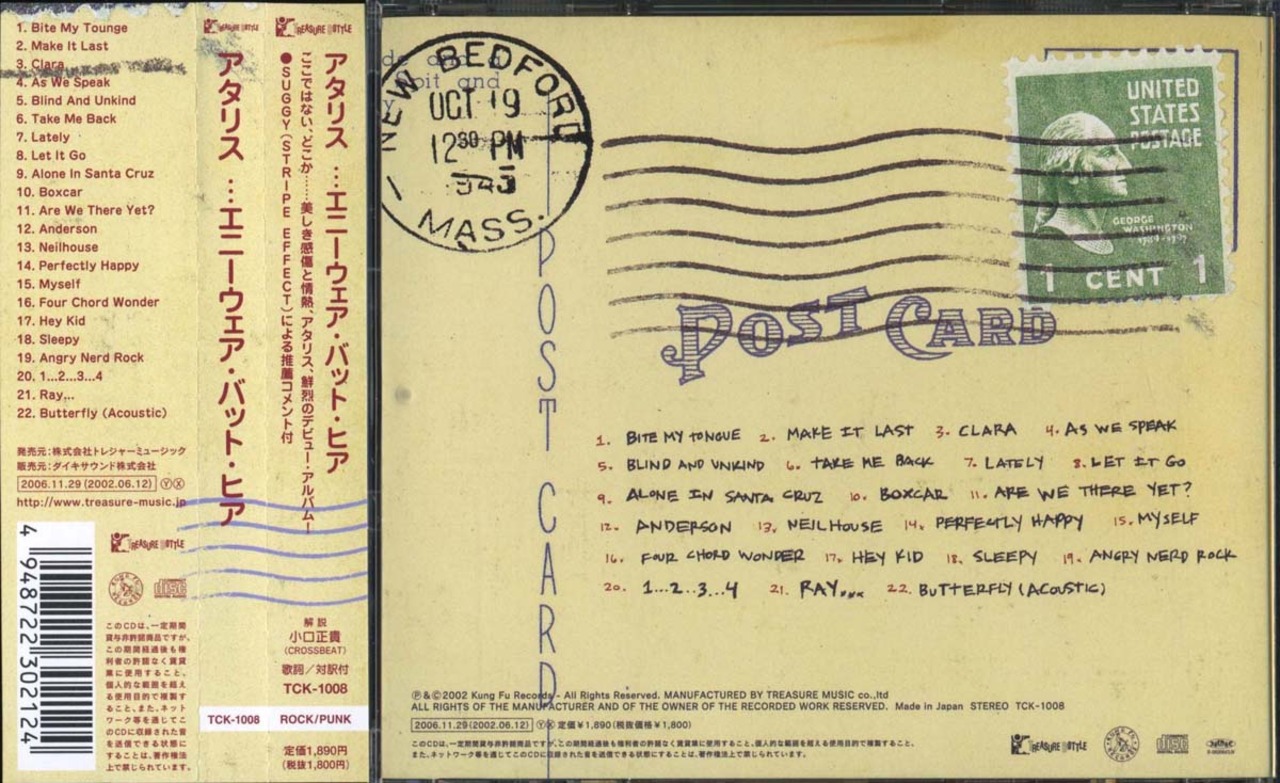 1. Bite My Tounge
2. Make It Last
3. Clara
4. As We Speak
5. Blind And Unkind
6. Take Me Back
7. Lately
8. Let It Go
9. Alone In Santa Cruz
10. Boxcar
11. Are We There Yet?
12. Anderson
13. Neilhouse
14. Perfectly Happy
15. Myself
16. Four Chord Wonder
17. Hey Kid
18. Sleepy
19. Angry Nerd Rock
20. 1...2...3...4
21. Ray...
22. Butterfly (Acoustic)
発売元:株式会社トレジャーミュージック
販売元:ダイキサウンド株式会社
2006.11.29 (2002.06.12) Ⓨ Ⓧ
http://www.treasure-music.jp
4 948722 302124
TREASURE STYLE
このCDは、一定期間
貸与非許諾商品ですが、
この期間経過後も権
利者の許諾なく賃貸
業に使用すること、
個人的な範囲を超え
る使用目的で複製す
ること、また、ネット
ワーク等を通じてこ
のCDに収録された音
を送信できる状態に
することは、著作権法
上で禁じられています。
TREASURE STYLE
アタリス …エニーウェア・バット・ヒア
TCK-1008
TREASURE STYLE
アタリス …エニーウェア・バット・ヒア
ここではない、どこか……美しき感傷と情熱、アタリス、鮮烈のデビュー・アルバム!
●SUGGY(STRIPE EFFECT)による推薦コメント付
解説
小口正貴
(CROSSBEAT)
歌詞/対訳付
TCK-1008
ROCK/PUNK
定価1,890円
(税抜1,800円)
NEW BEDFORD
OCT 19
12 30 PM
MASS.
UNITED
STATES
POSTAGE
GEORGE
WASHINGTON
1 CENT 1
POST CARD
POST CARD
1. BITE MY TONGUE 2. MAKE IT LAST 3. CLARA 4. AS WE SPEAK
5. BLIND AND UNKIND 6. TAKE ME BACK 7. LATELY 8. LET IT GO
9. ALONE IN SANTA CRUZ 10. BOXCAR 11. ARE WE THERE YET?
12. ANDERSON 13. NEILHOUSE 14. PERFECTLY HAPPY 15. MYSELF
16. FOUR CHORD WONDER 17. HEY KID 18. SLEEPY 19. ANGRY NERD ROCK
20. 1...2...3...4 21. RAY... 22. BUTTERFLY (ACOUSTIC)
Ⓟ&©2002 Kung Fu Records - All Rights Reserved. MANUFACTURED BY TREASURE MUSIC co.,ltd
ALL RIGHTS OF THE MANUFACTURER AND OF THE OWNER OF THE RECORDED WORK RESERVED. Made in Japan STEREO TCK-1008
2006.11.29(2002.06.12) Ⓨ Ⓧ 定価¥1,890(税抜価格¥1,800)
このCDは、一定期間貸与非許諾商品ですが、この期間経過後も権利者の許諾なく賃貸業に使用すること、個人的な範囲を超える使用目的で複製すること、
また、ネットワーク等を通じてこのCDに収録された音を送信できる状態にすることは、著作権法上で禁じられています。
TREASURE STYLE